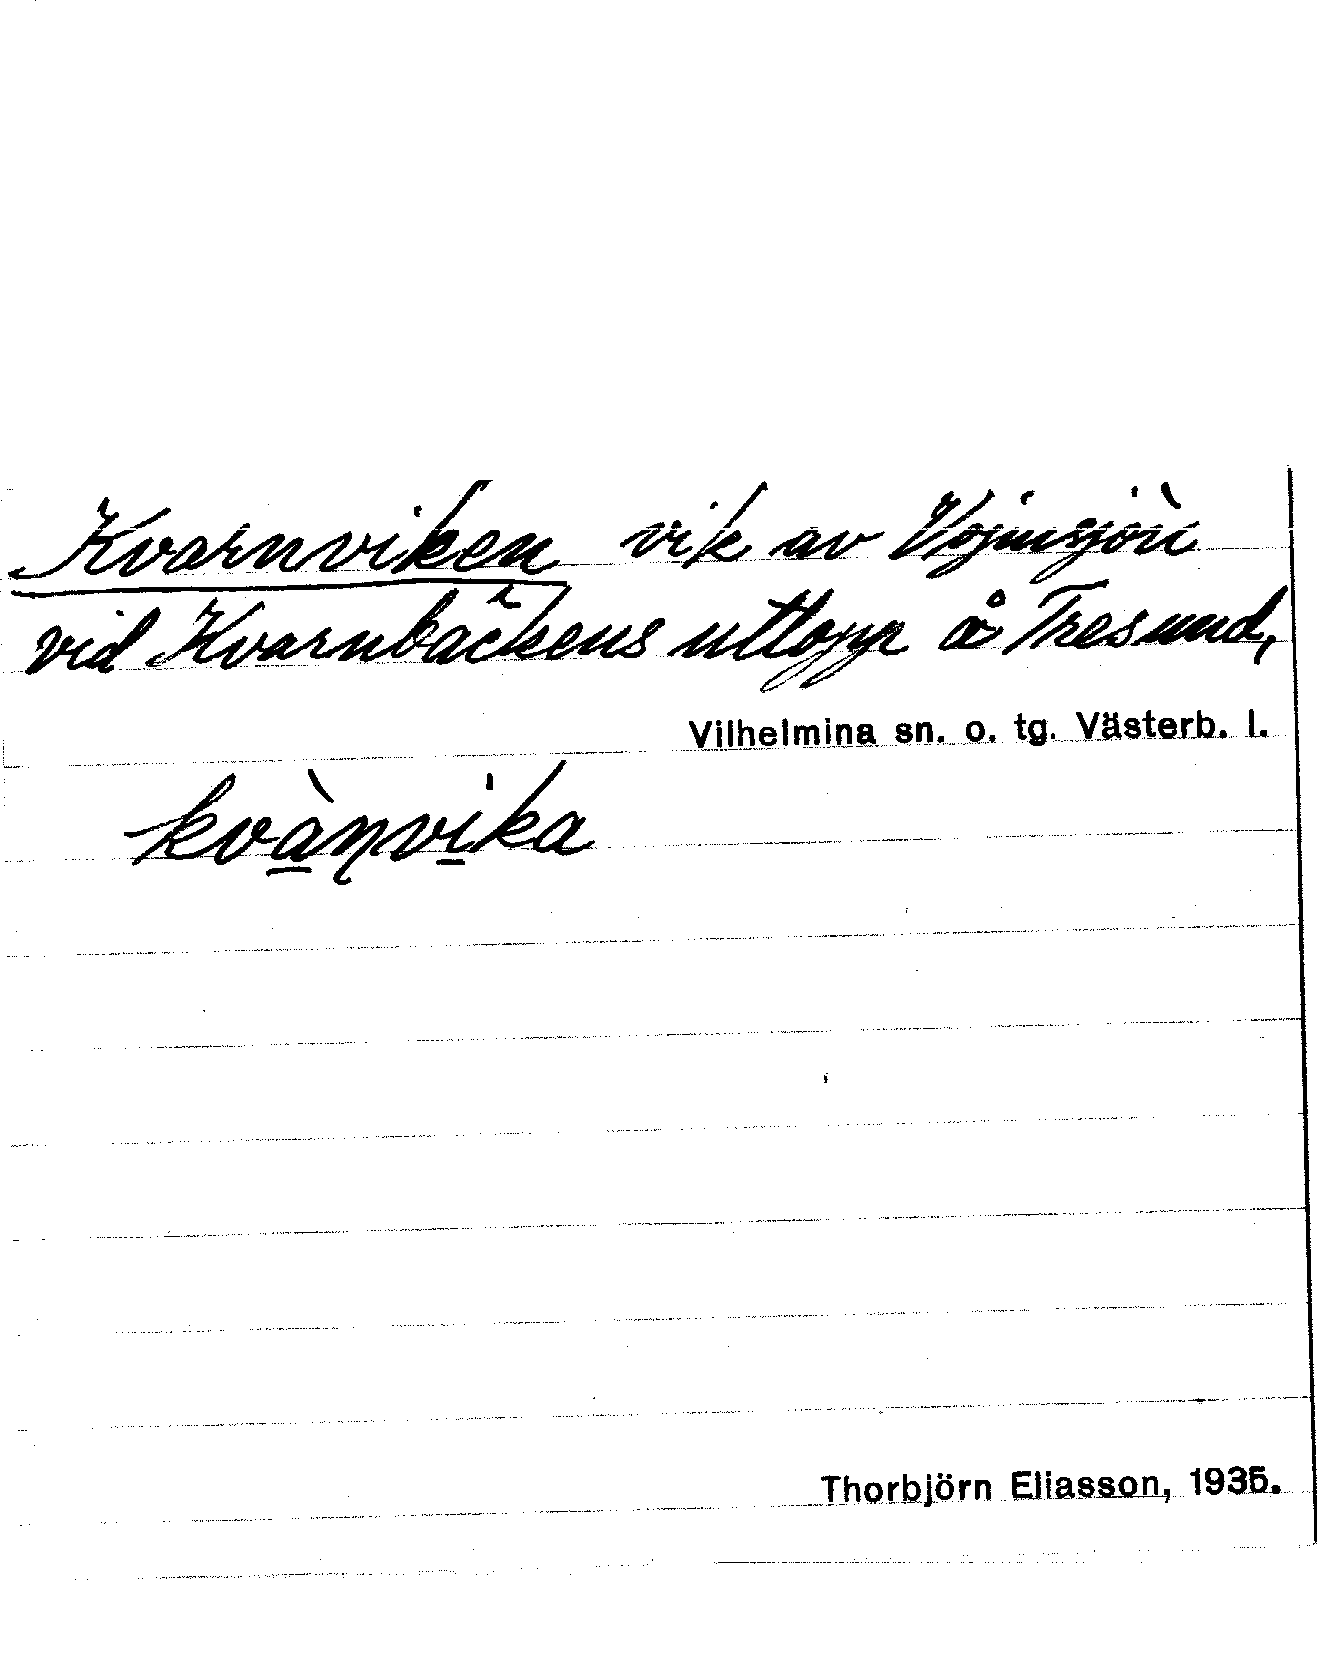 Kvarnviken vik av Vojmsjön
vid Kvarnbäckens utlopp å Tresund,
Vilhelmina sn. o. tg. Västerb. l.
kvàṇvika
Thorbjörn Eliasson, 1935.